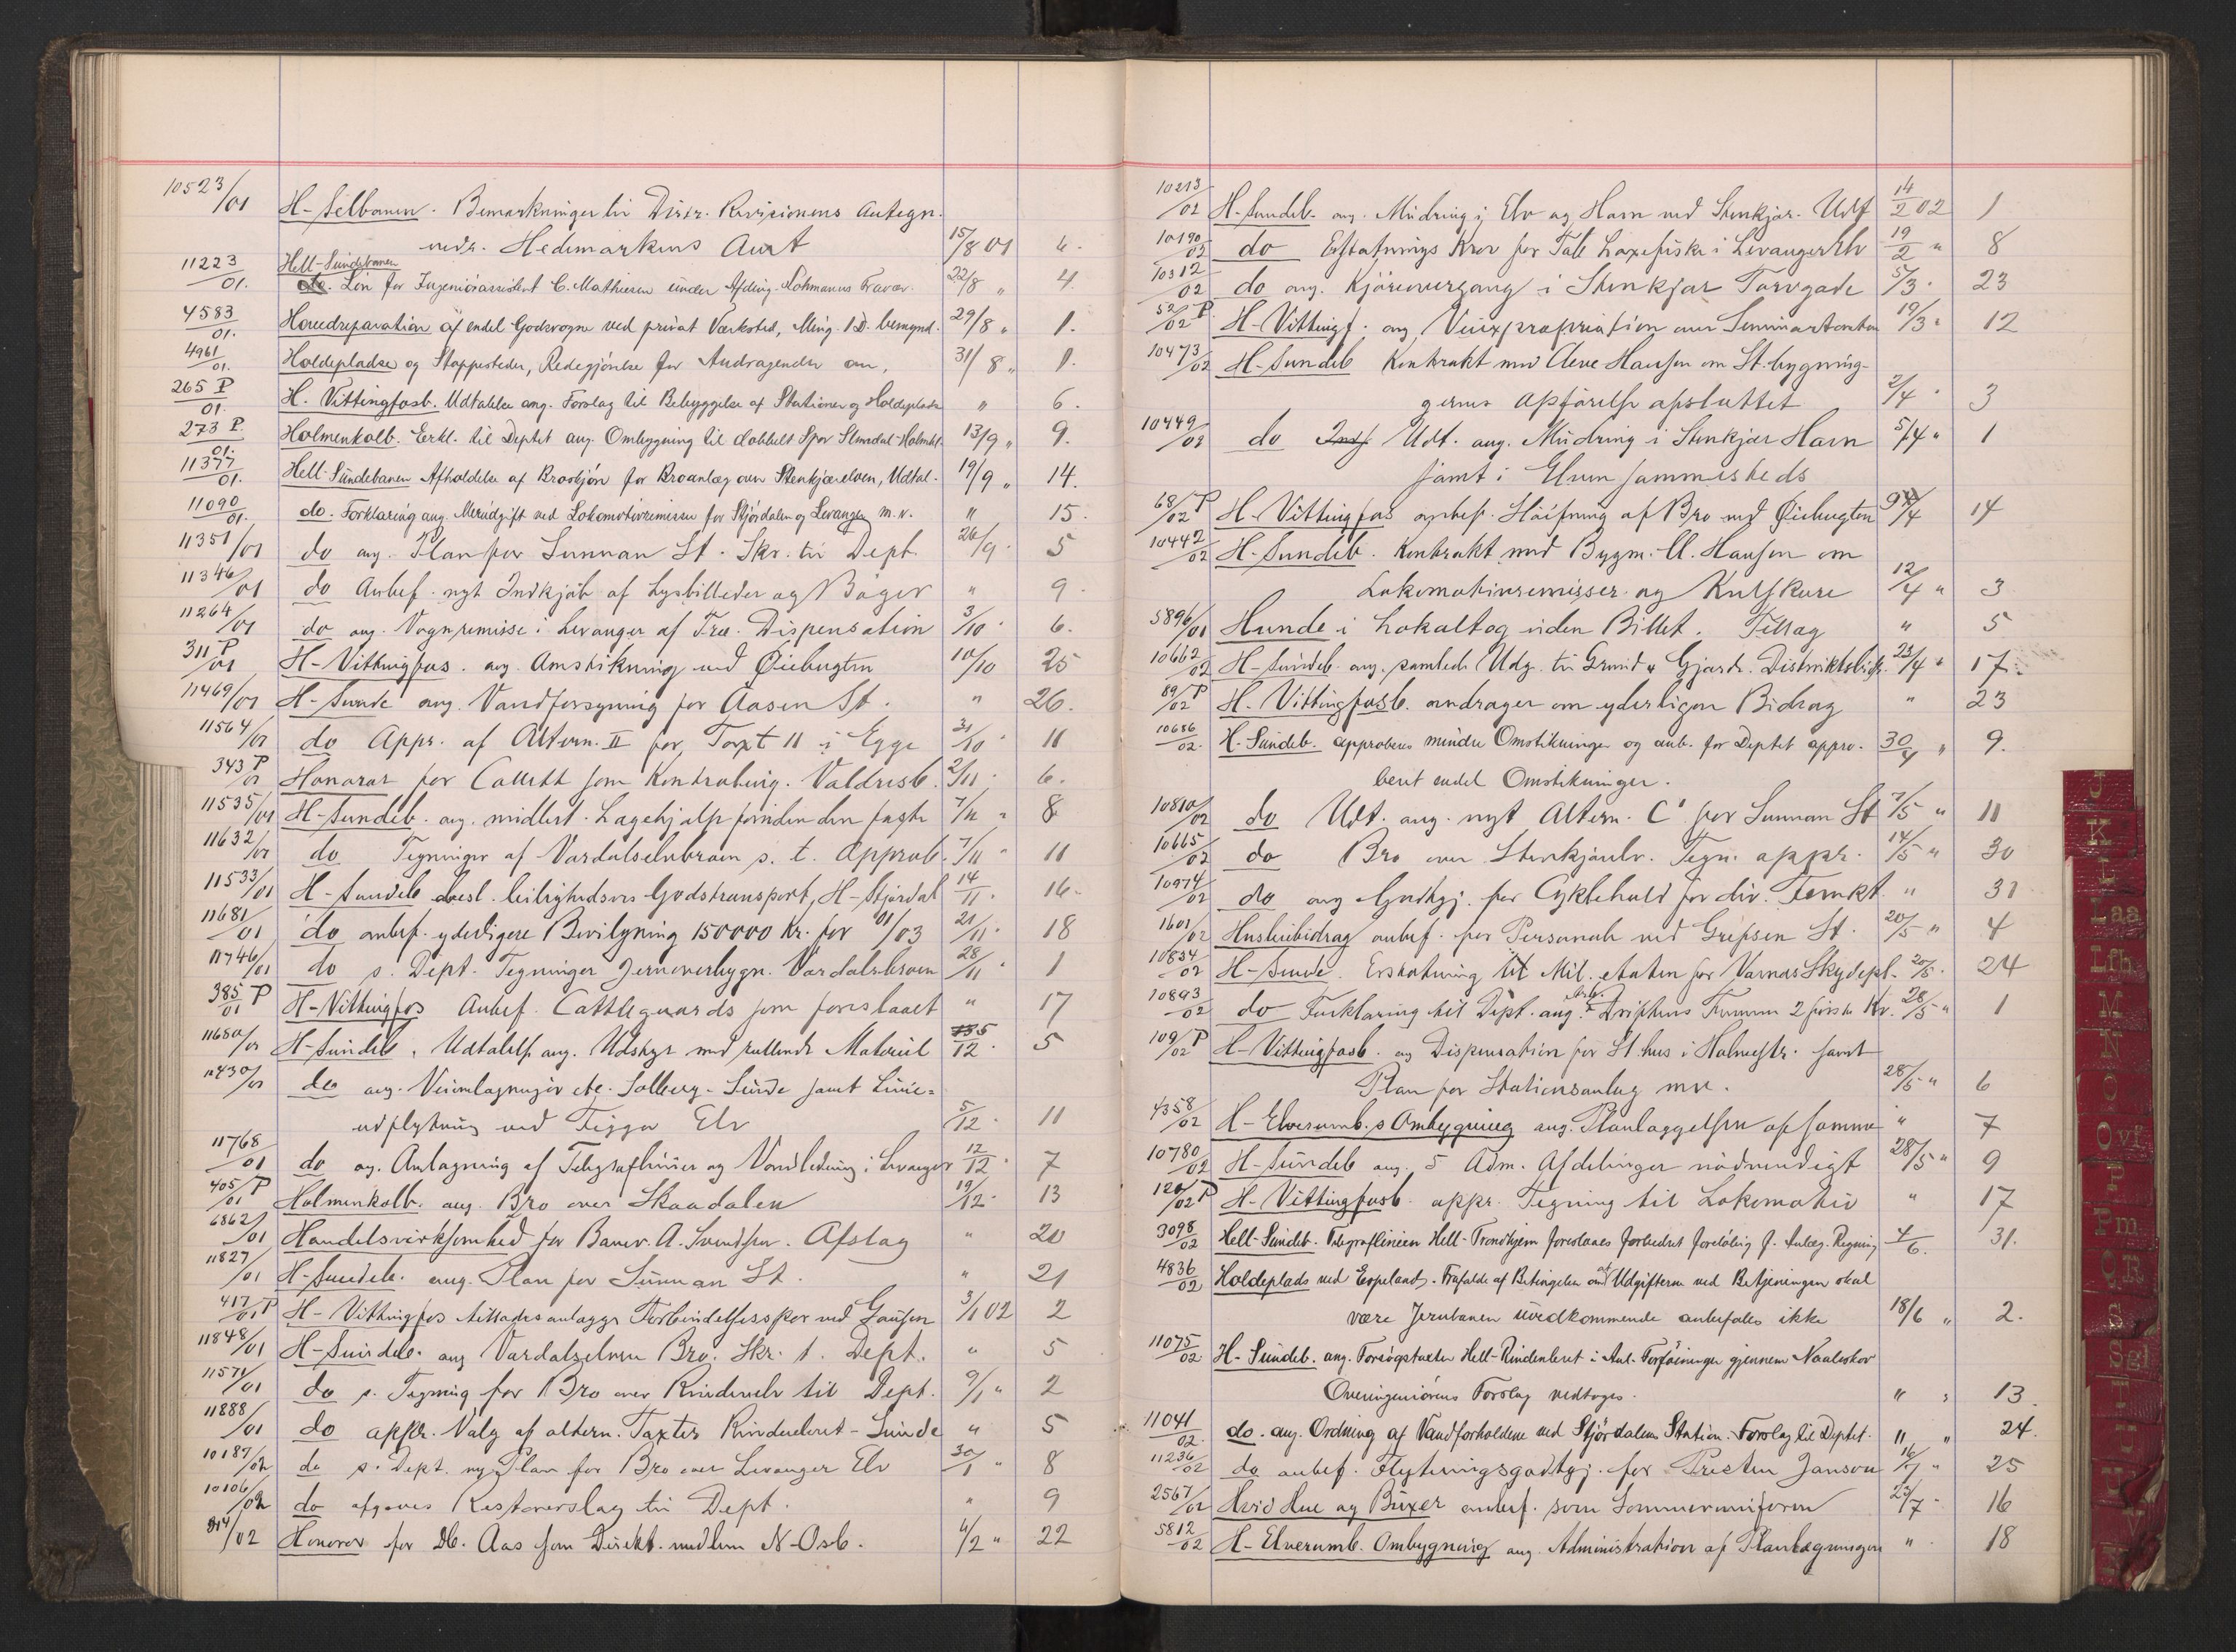 10523/01 H-Selbanen. Bemærkninger til Distr. Revisionens Antegn.
vedr. Hedemarkens Amt 15/8 01 6.
11223/01. Hell-Sundebanen
Løn for Ingeniørassistent C. Mathiesen under Afding. Lohmanns Fravær. 22/8 " 4.
4583/01. Hovedreparation af endel Godsvogne ved privat Værksted, Ming. 1 D. bemynd. 29/8 " 1.
4961/01. Holdepladse og Stoppesteder, Redegjørelse for Andragender om, 31/8 " 1.
265 P/01. H. Vittingfosb. Udtalelse ang. Forslag til Bebyggelse af Stationer og Holdepladse " 6.
273 P/01. Holmenkolb. Erkl. til Deptet ang. Ombygning til dobbelt Spor Slemdal-Holmkl. 13/9 " 9.
11377/01. Hell-Sundebanen Afholdelse af Broskjøn for Broanlæg over Stenkjærelven, Udtal. 19/9 " 14.
11090/01. do. Forklaring ang. Merudgift ved Lokomotivremisse for Stjørdalen og Levanger m.v. " 15.
11351/01 do ang. Plan for Sunnan St. Skr. til Dept. 26/9. 5
11346/01 do Anbef. nyt Indkjøb af Lysbilleder og Bøger " 9.
11264/01 do ang. Vognremisse i Levanger af Træ. Dispensation 3/10 " 6.
311 P/01 H-Vittingfos. ang. Omstikning ved Eiebugten 10/10 25
11469/01 H-Sunde ang. Vandforsyning for Aasen St. " 26.
11564/01 do Appr. af Altern. II for Taxt 11 i Egge 31/10 " 11
343 P/01 Honorar for Collett som Kontroling. Valdresb. 2/11. 6.
11535/01 H-Sundeb. ang. midlert. Lægehjælp forinden den faste 7/11 " 8
11632/01 do Tegninger af Værdalselvbroen s. t. Approb. 7/11 " 11
11533/01 H-Sundeb besl. leilighedsvis Godstransport, H-Stjørdal 14/11. 16.
11681/01 do anbef. yderligere Bevilgning 150000 Kr. for 01/03 21/11. 18
11746/01 do s. Dept. Tegninger Jernoverbygn. Værdalsbroen 28/11. 1
385 P/01 H-Vittingfos Anbef. Cattleguards som foreslaaet " 17
11680/01 H-Sundeb. Udtalelse ang. Udstyr med rullende Materiel 5/12. 5
11430/01 do ang. Veiomlægninger etc. Solberg-Sunde samt Linie-
udflytning ved Figga Elv 5/12. 11
11768/01 do ang. Omlægning af Telegraflinier og Vandledning i Levanger 12/12. 7
405 P/01 Holmenkolb. ang. Bro over Skaadalen 19/12. 13
6862/01 Handelsvirksomhed for Banev. A. Svendsen. Afslag " 20
11827/01 H-Sundeb. ang. Plan for Sunnan St. " 21
417/01 P H-Vittingfos tillades anlagt Forbindelsesspor ved Gausen 3/1 02 2
11848/01 H-Sundeb. ang Værdalselven Bro. Skr. t. Dept. " 5
11571/01 do s. Tegning for Bro over Rindenelv til Dept. 9/1 " 2
11888/01 do appr. Valg af altern. Taxter Rindenleret-Sunde " 5
10187/02 do s. Dept. ny Plan for Bro over Levanger Elv 30/1 " 8
10106/02 do afgives Restoverslag til Dept. " 9
314/02 Honorar for Db. Aas som Direkt. medlem N-Osb. 4/2 " 22
10213/02 H-Sundeb. ang. Mudring i Elv og Havn ved Stenkjær. Udt 14/2 02 1
10190/02 do Erstatnings Krav for Tabt Laxefiske i Levanger Elv 19/2 " 8
10312/02 do ang. Kjøreovergang i Stenkjær Torvgade 5/3. 23
52/02 P H-Vittingf. ang. Veiexpropriation over Seminartomten 19/3 " 12
10473/02 H-Sundeb Kontrakt med Arne Hansen om St. bygning-
gernes Opførelse afsluttet 2/4 " 3
10449/02 do Udt. ang. Mudring i Stenkjær Havn 5/4 " 1
samt i Elven sammesteds
68/02 P H-Vittingfos anbef. Høifning af Bro ved Eiebugten 9/4 14
10442/02 H-Sundeb. Kontrakt med Bygm. A. Hansen om
Lokomotivremisser og Kulskure 12/4 " 3
5896/01 Hunde i Lokaltog uden Billet. Tillæg " 5
10662/02 H-Sundeb. ang. samlede Udg. til Grund & Gjærde. Distriktsbidr. 23/4 " 17.
89/02 P H-Vittingfosb. andrager om yderligere Bidrag " 23
10686/02. H-Sundeb. approberes mindre Omstikninger og anb. for Deptet appro- 30/4 " 9.
beret endel Omstikninger.
10810/02 do Udt. ang. nyt Altern. C' for Sunnan St 7/5 " 11
10665/02 do Bro over Stenkjærelv. Tegn. appr. 14/5 " 30
10974/02 do ang Godtgj. for Cyklehold for div. Funkt. " 31
1601/02 Husleiebidrag anbef. for Personale ved Grefsen St. 20/5 " 4
10834/02 H-Sunde. Erstatning til Mil. etaten for Værnes Skydepl. 20/5. 24
10893/02 do Forklaring til Dept. ang. Driftens Fremme 2 første Kv. 28/5 " 1
109/02 P H-Vittingfosb. ang Dispensation for St. hus i Holmestr. samt
Plan for Stationsanlæg mv. 28/5 " 6
4358/02 H-Elverumb.s Ombygning ang. Planlæggelsen af samme " 7
10780/02 H-Sundeb ang. 5 Adm. Afdelinger nødvendigt 28/5 " 9
120/02 P H-Vittingfosb. appr. Tegning til Lokomotiv " 17
3098/02 Hell-Sundeb. Telegraflinien Hell-Trondhjem foreslaaes forbedret foreløbig f. Anlæg. Regning 4/6. 31.
4836/02 Holdeplads ved Espeland. Frafalde af Betingelse om at Udgifterne ved Betjeningen skal
være Jernbanen uvedkommende anbefales ikke 18/6 " 2.
11075/02. H-Sundeb. ang. Forsøgstaxter Hell-Rindenleret i Anl. Forføininger gjennem Naaleskov
Overingeniørens Forslag vedtages. " " 13.
11041/02. do. ang. Ordning af Vandforholdene ved Stjørdalens Station. Forslag til Deptet. " " 24.
11236/02 do anbef. Flytningsgodtgj. for Presten Janson 16/7 " 25
2567/02 Hvid Hue og Buxer anbef. som Sommeruniform 23/7 " 16
5812/02 H-Elverumb. Ombygning ang. Administration af Planlægningen " 18
J
K
L
Laa
Lfh
M
N
O
Ovf
P
Pm
QR
S
Sgl